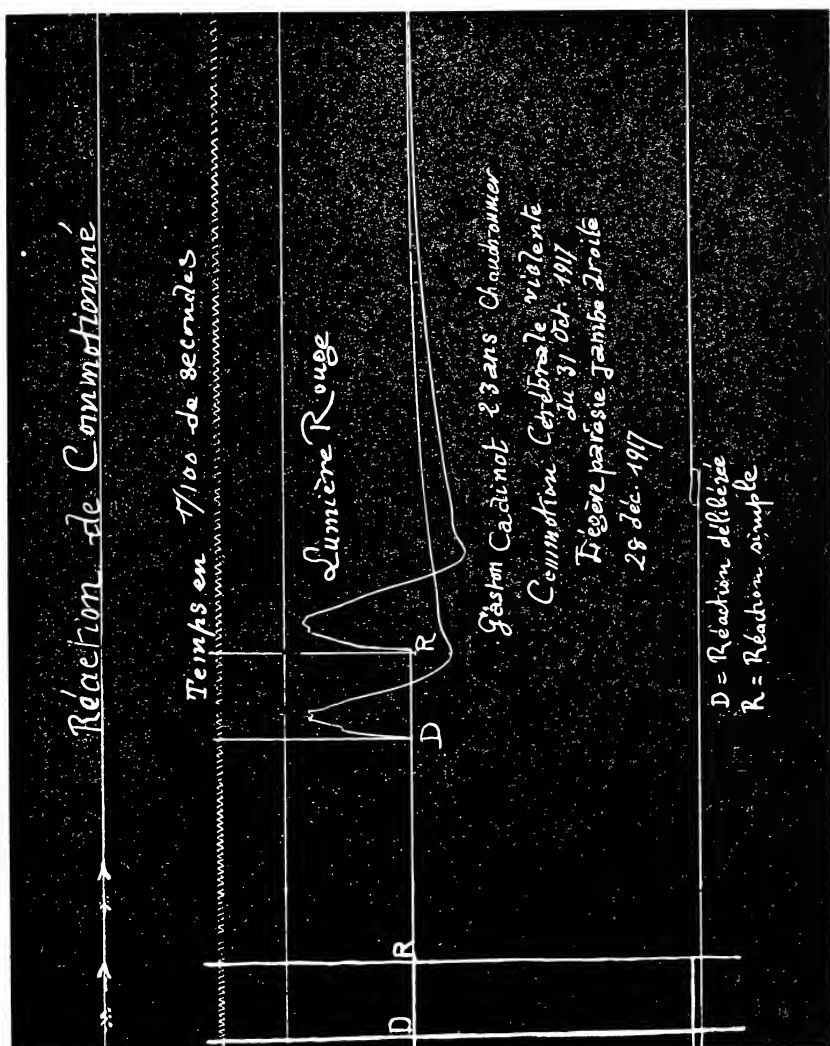 Réaction de Commotionné
Temps en 1/100 de secondes
Lumière Rouge
D
R
D
R
Gaston Cadinot 23 ans Chaudronnier
Commotion Cérébrale violente
du 31 Oct. 1917
Légère parésie jambe droite
28 déc. 1917
D = Réaction délibérée
R = Réaction simple